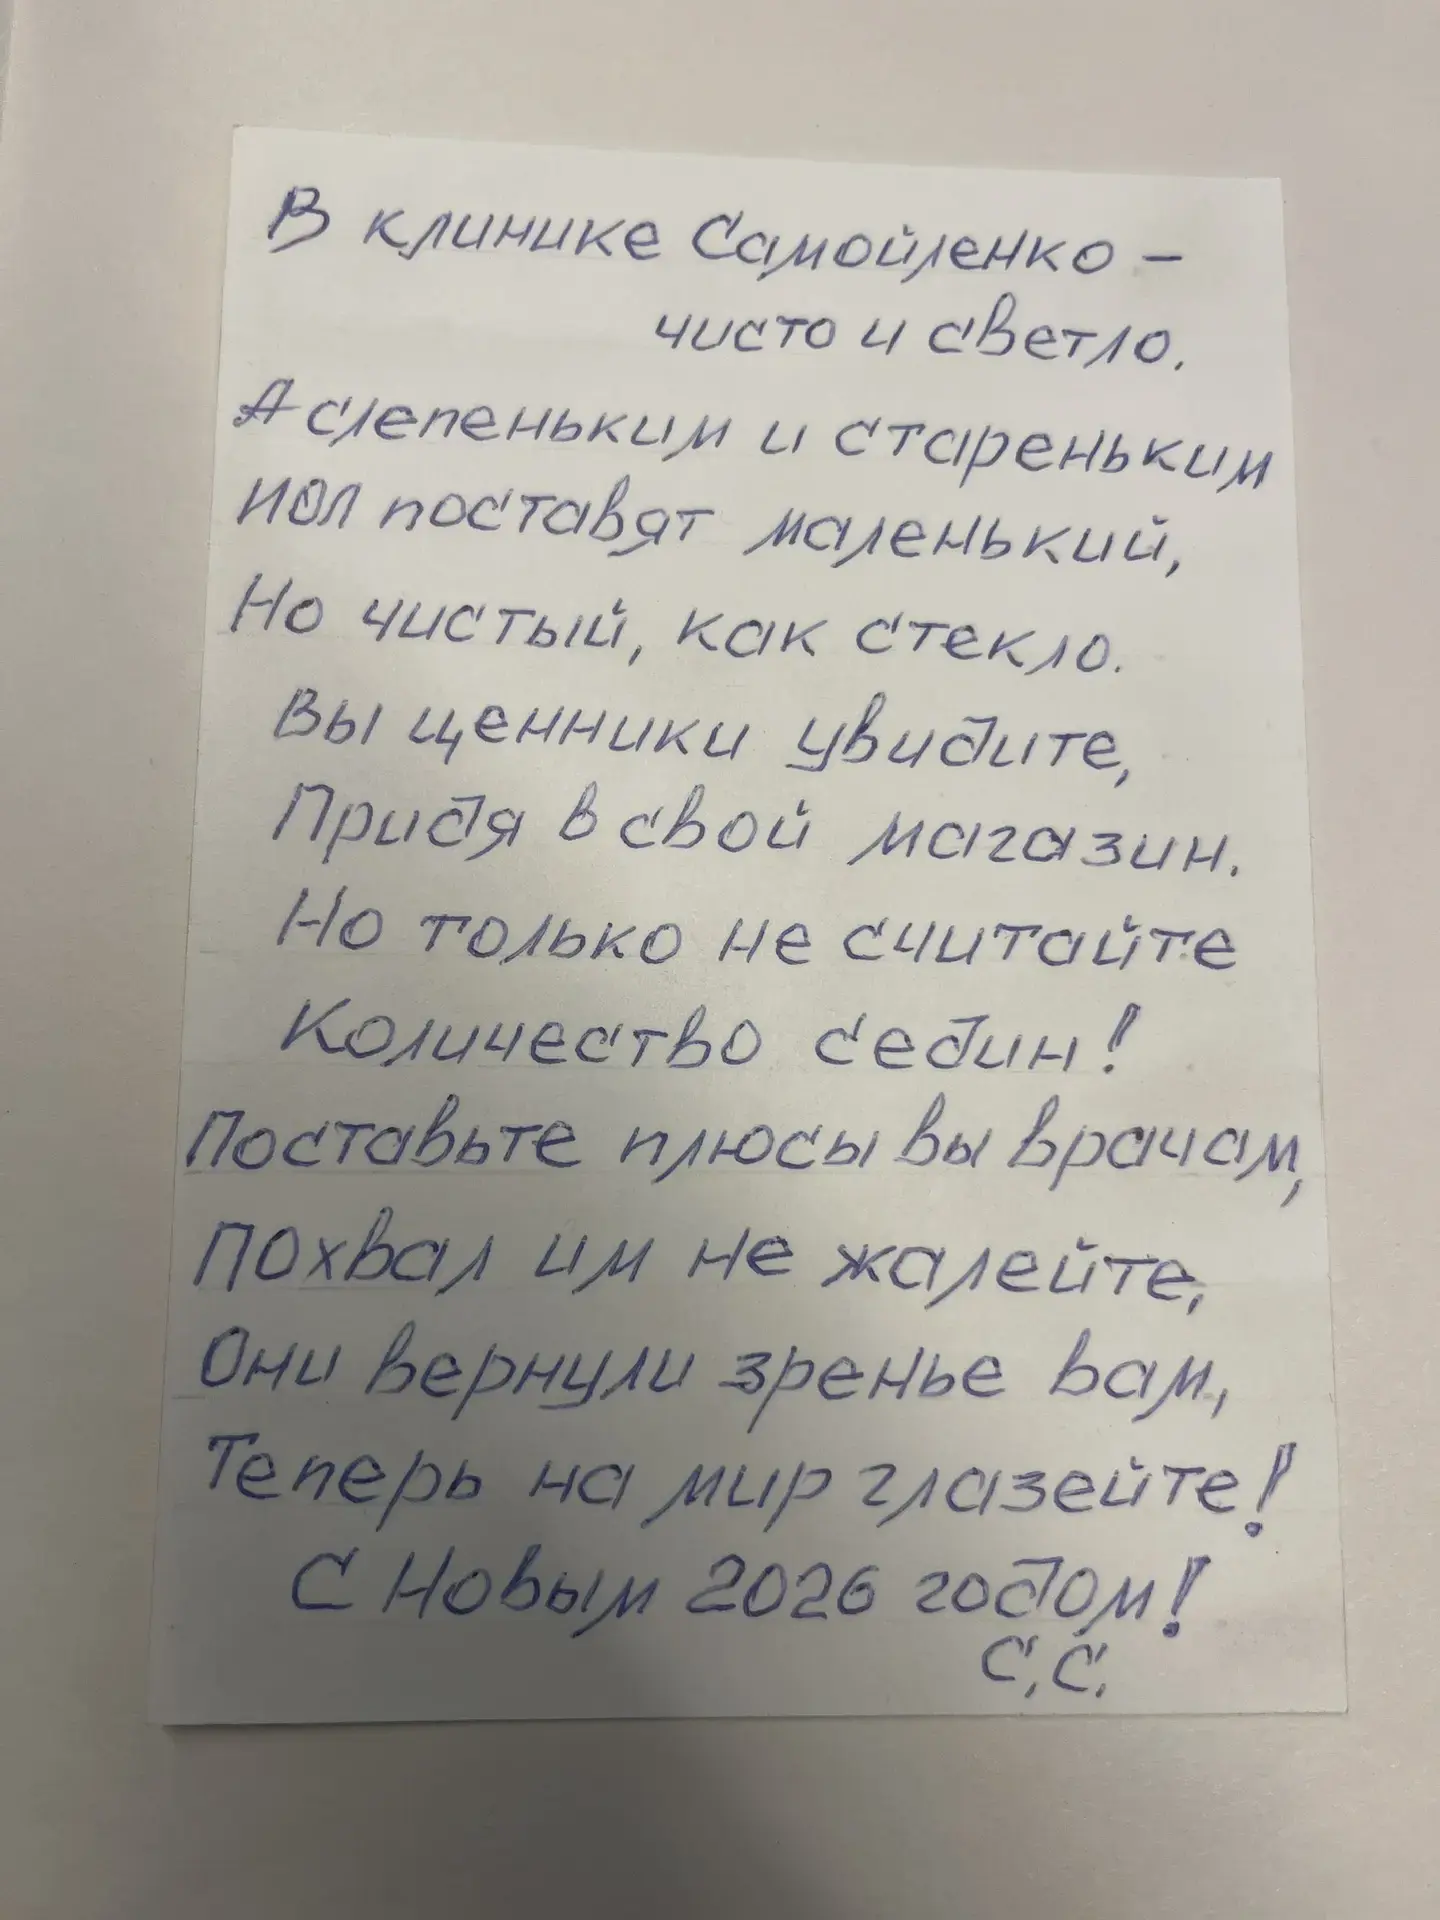 В клинике Самойленко –
чисто и светло.
А слепеньким и стареньким
ИОЛ поставят маленький,
Но чистый, как стекло.
Вы ценники увидите,
Придя в свой магазин.
Но только не считайте
Количество седин!
Поставьте плюсы вы врачам,
Похвал им не жалейте,
Они вернули зренье вам,
Теперь на мир глазейте!
С Новым 2026 годом!
С.С.